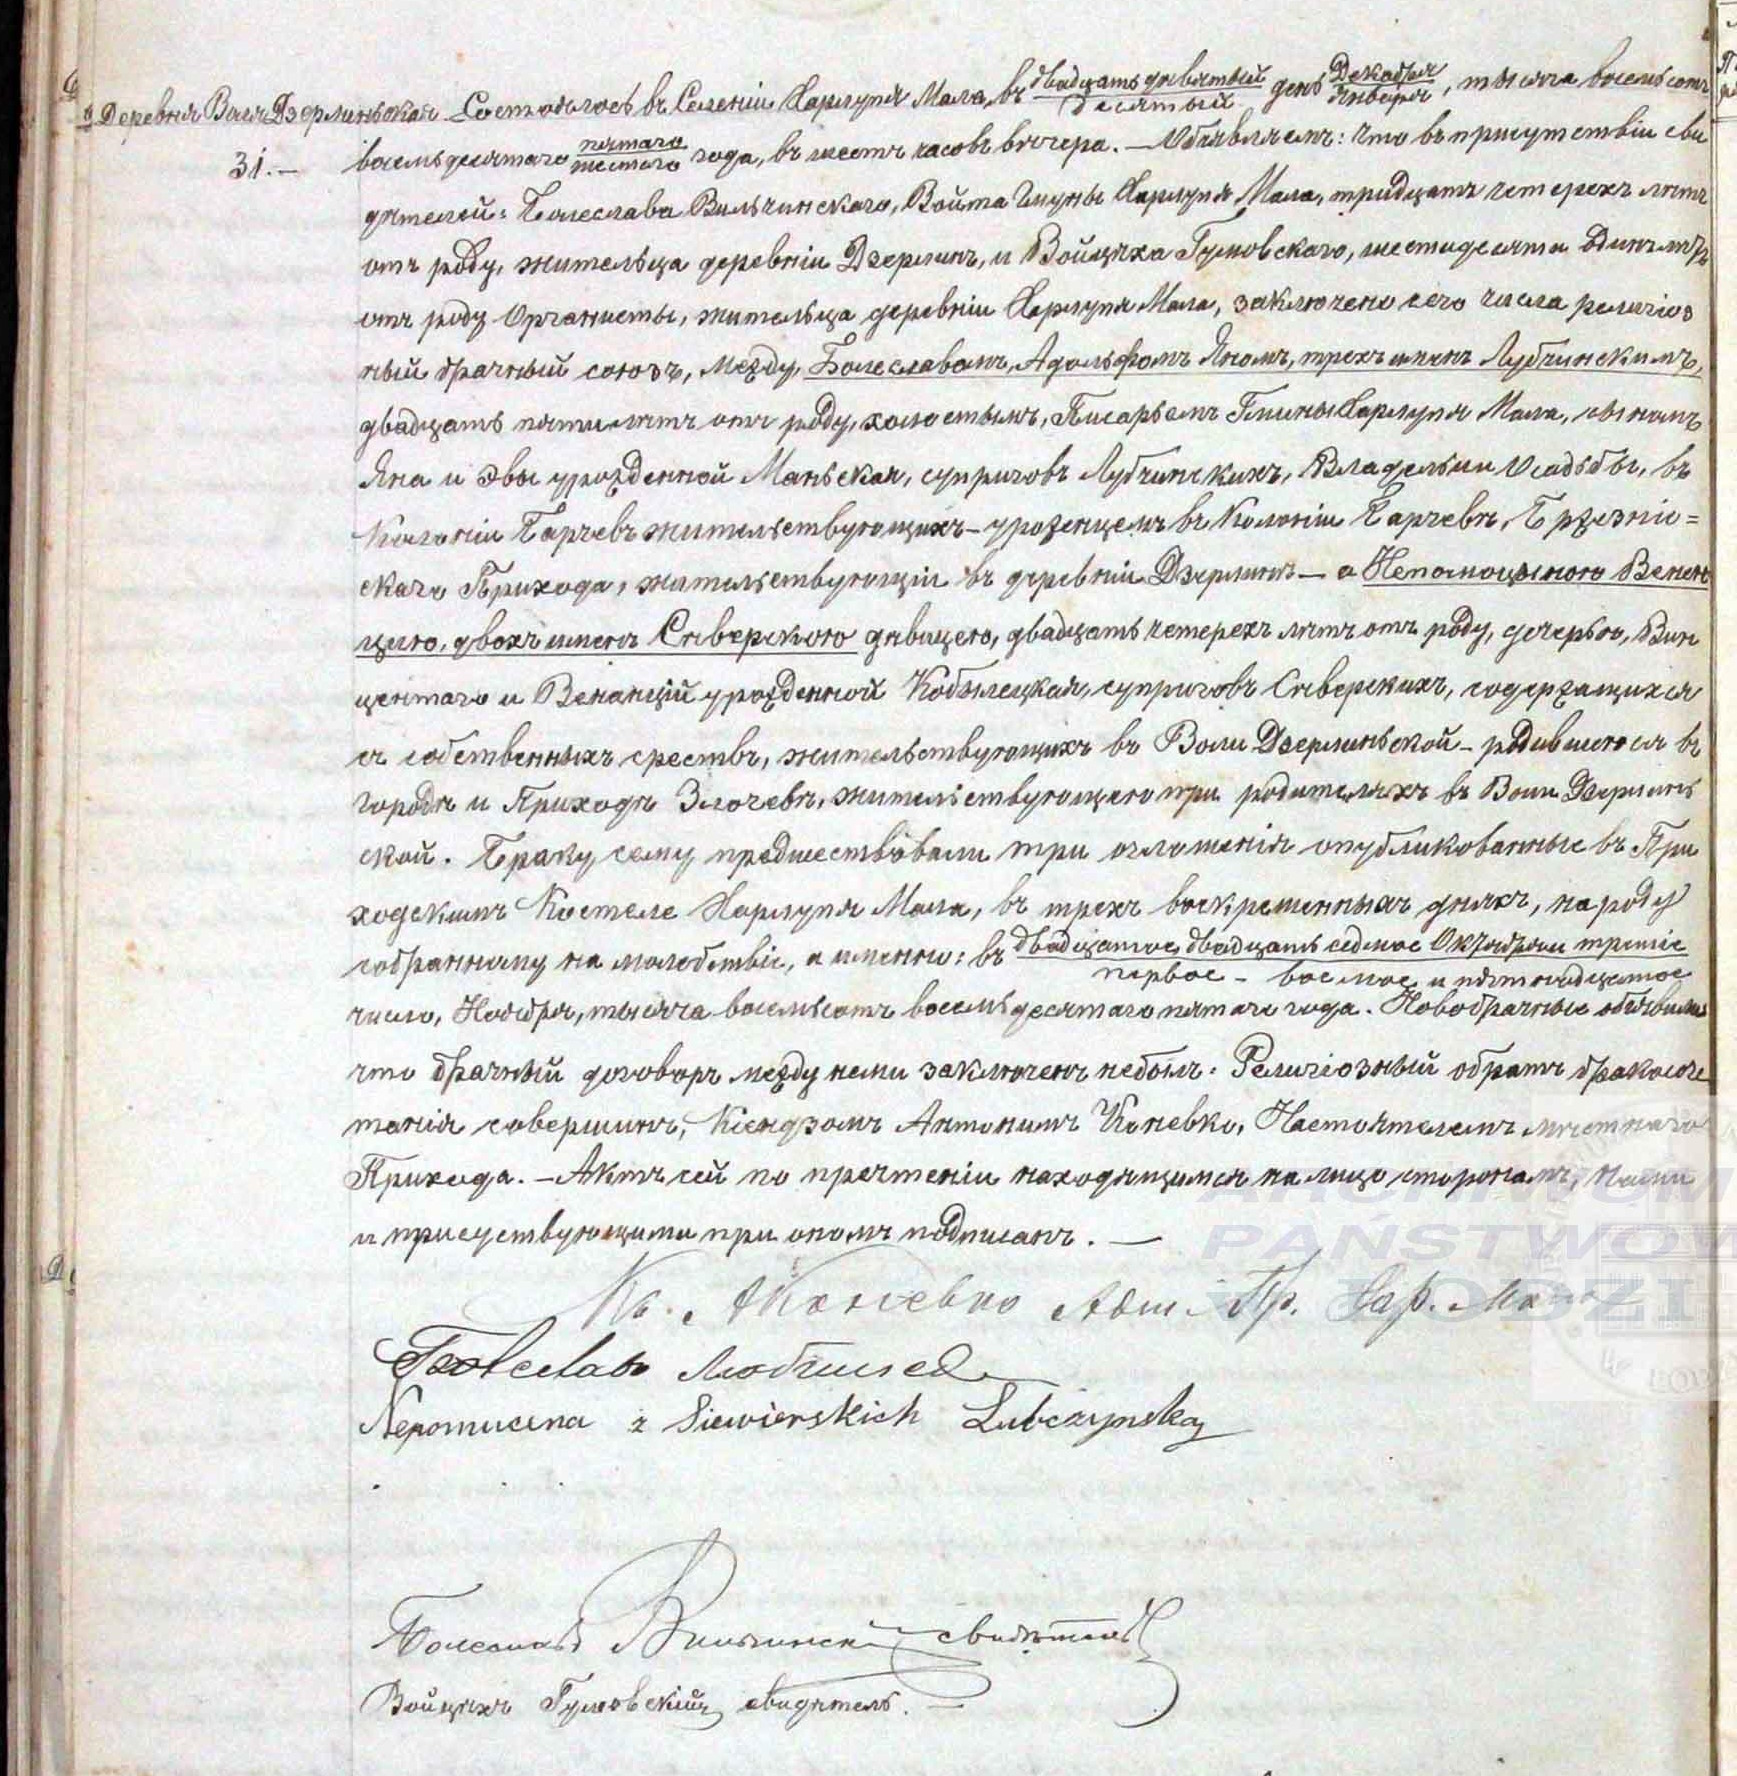 Деревня Воля Дзерлиньская Состоялось въ Селеніи Харлупя Мала, въ двадцать девятый/десятый день Декабря/Января, тысяча восемьсотъ
31.— восемьдесятаго пятаго/шестаго года, въ шесть часовъ вечера. — Объявляемъ: что въ присутствіи сви
дѣтелей: Болеслава Вильчинскаго, Войта Гмины Харлупя Мала, тридцать четерехъ лѣтъ
отъ роду, жительца деревніи Дзерлинъ, и Войцѣха Гумовскаго, шестидесяти одинъ лѣтъ
отъ роду Органисты, жительца деревніи Харлупя Мала, заключено сего числа религіоз
ный брачный союзъ, между, Болеславомъ, Адольфомъ Яномъ, трехъ именъ Лубчинскимъ,
двадцать пяти лѣтъ отъ роду, холостымъ, Писарьемъ Гмины Харлупя Мала, сыномъ
Яна и Эвы урожденной Маньская, супруговъ Лубчинскихъ, Владельии Усадьбы, въ
Колоніи Барчевъ жительствующихъ — уроженцемъ въ Колоніи Барчевъ, Брзезнис=
скаго Прихода, жительствующіи въ деревніи Дзерлинъ — а Непомоценою Венан
цію, двохъ именъ Сѣверскою дѣвицею, двадцать четерехъ лѣтъ отъ роду, дочерью, Вин
центаго и Венанцій урожденной Кобылецкая, супруговъ Сѣверскихъ, содержащихся
съ собственныхъ срествъ, жительствующихъ въ Воли Дзерлиньской — родившеюся въ
городѣ и Приходѣ Злочевъ, жительствующею при родителяхъ въ Воли Дзерлинь
ской. Браку сему предшествовали три оглошенія опубликованные въ При
ходскимъ Костеле Харлупя Мала, въ трехъ воскрешенныхъ дняхъ, народу
собранному на молебствіе, а именно: въ двадцатое, двадцать седмое Октября и третіе
первое — восмое и пятнадцатое
число, Ноября, тысяча восемьсотъ восемьдесятаго пятаго года. Новобрачные объявили
что брачный договоръ между ними заключенъ небылъ. Религіозный обрятъ бракосоче
танія совершинъ, Ксендзомъ Антонимъ Коневко, Настоятелемъ мѣстнаго
Прихода. — Актъ сей по прочтеніи находящимся на лицо сторонамъ, нами
и присуствующими при ономъ подписанъ. —
Кс. А Коневко Адм. Пр. Хар. Мала
Болеславъ Любчинск
Nepomucena z Siewierskich Lubczynska
Болеславъ Вильчински свидѣтель
Войцѣхъ Гумовскій свидѣтель. —
ARCHIWUM
PAŃSTWOW
ŁODZI